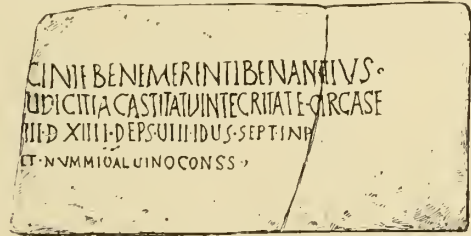 CINTE BENEMERINTI BENANTIVS·
UDICITIA CASTITATUINTECRITATE·CIRCASE
III·D XIIII·DEPS·UIIII·IDUS·SEPTINP
ET·NVMMIOALUINOCONSS·